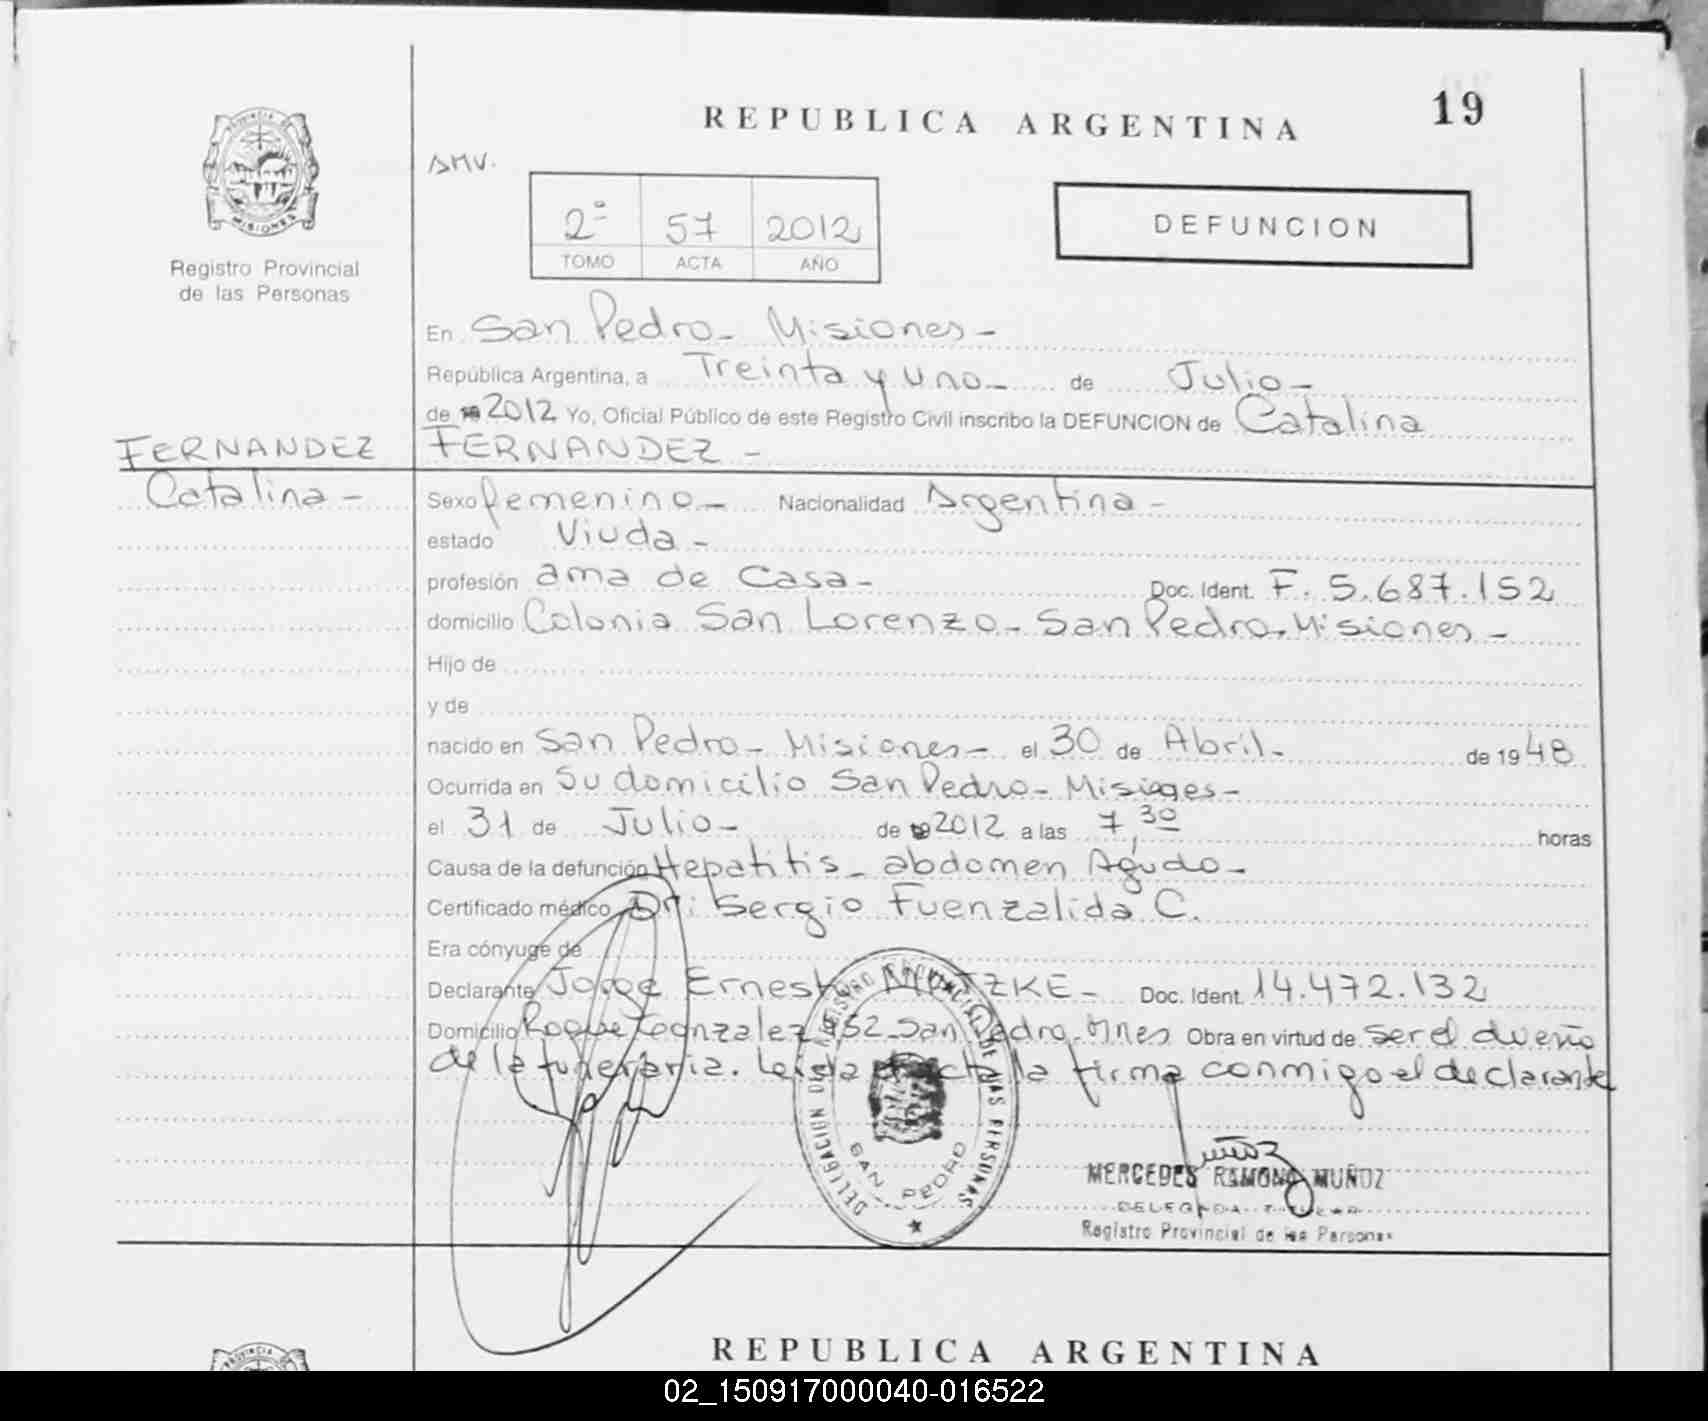 REPUBLICA ARGENTINA
19
PROVINCIA DE
MISIONES
Registro Provincial
de las Personas
AMV.
2º 57 2012
TOMO ACTA AÑO
DEFUNCION
En San Pedro - Misiones -
República Argentina, a Treinta y uno - de Julio -
de 2012 Yo, Oficial Público de este Registro Civil inscribo la DEFUNCION de Catalina
FERNANDEZ -
FERNANDEZ
Catalina -
Sexo femenino - Nacionalidad Argentina -
estado Viuda -
profesión ama de Casa - Doc. Ident. F. 5.687.152
domicilio Colonia San Lorenzo - San Pedro, Misiones -
Hijo de
y de
nacido en San Pedro - Misiones - el 30 de Abril - de 1948
Ocurrida en Su domicilio San Pedro - Misiones -
el 31 de Julio - de 2012 a las 7,30 horas
Causa de la defunción Hepatitis - abdomen Agudo -
Certificado médico Dr: Sergio Fuenzalida C.
Era cónyuge de
Declarante Jorge Ernesto ZKE - Doc. Ident. 14.472.132
Domicilio Roque Gonzalez 952 - San Pedro - Mnes Obra en virtud de ser el dueño
de la funeraria. Leida el acta la firma conmigo el declarante
DELEGACION DEL REGISTRO PROVINCIAL DE LAS PERSONAS
SAN PEDRO
Muñoz
MERCEDES RAMONA MUÑOZ
DELEGADA TITULAR
Registro Provincial de las Personas
PROVINCIA
REPUBLICA ARGENTINA
02_150917000040-016522